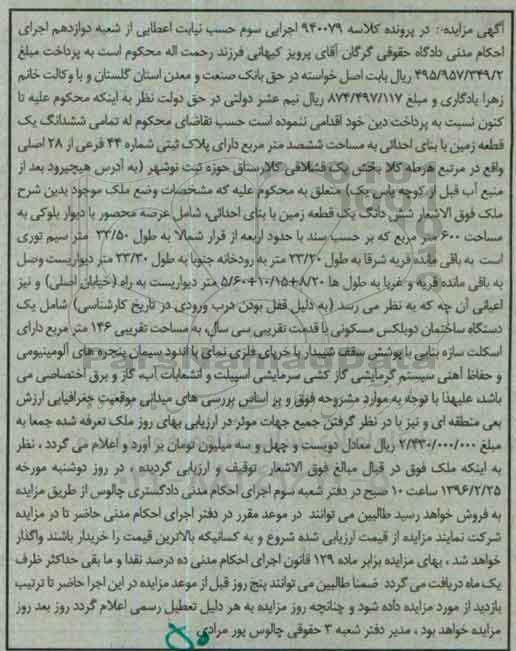 آگهی مزایده: در پرونده کلاسه ۹۴۰۰۷۹ اجرایی سوم حسب نیابت اعطایی از شعبه دوازدهم اجرای
احکام مدنی دادگاه حقوقی گرگان آقای پرویز کیهانی فرزند رحمت اله محکوم است به پرداخت مبلغ
۴۹۵/۹۵۷/۳۴۹/۲ ریال بابت اصل خواسته در حق بانک صنعت و معدن استان گلستان و با وکالت خانم
زهرا یادگاری و مبلغ ۸۷۴/۴۹۷/۱۱۷ ریال نیم عشر دولتی در حق دولت نظر به اینکه محکوم علیه تا
کنون نسبت به پرداخت دین خود اقدامی ننموده است حسب تقاضای محکوم له تمامی ششدانگ یک
قطعه زمین با بنای احداثی به مساحت ششصد متر مربع دارای پلاک ثبتی شماره ۴۴ فرعی از ۲۸ اصلی
واقع در مرتع هرطه کلا بخش یک قشلاقی کلارستاق حوزه ثبت نوشهر (به آدرس هیچیرود بعد از
منبع آب قبل از کوچه یاس یک) متعلق به محکوم علیه که مشخصات وضع ملک موجود بدین شرح
ملک فوق الاشعار شش دانگ یک قطعه زمین با بنای احداثی، شامل عرصه محصور با دیوار بلوکی به
مساحت ۶۰۰ متر مربع که بر حسب سند با حدود اربعه از قرار شمالا به طول ۳۳/۵۰ متر سیم توری
است به باقی مانده قریه شرقا به طول ۲۳/۲۰ متر به رودخانه جنوبا به طول ۳۳/۳۰ متر دیواریست وصل
به باقی مانده قریه و غربا به طول ها ۸/۲۰+۱۰/۱۵+۵/۶۰ متر دیواریست به راه (خیابان اصلی) و نیز
اعیانی آن چه که به نظر می رسد (به دلیل قفل بودن درب ورودی در تاریخ کارشناسی) شامل یک
دستگاه ساختمان دوبلکس مسکونی با قدمت تقریبی سی سال، به مساحت تقریبی ۱۴۶ متر مربع دارای
اسکلت سازه بنایی با پوشش سقف شیبدار با خرپای فلزی نمای با اندود سیمان پنجره های آلومینیومی
و حفاظ آهنی سیستم گرمایشی گاز کشی سرمایشی اسپیلت و انشعابات آب، گاز و برق اختصاصی می
باشد، علیهذا با توجه به موارد مشروحه فوق و بر اساس بررسی های میدانی موقعیت جغرافیایی ارزش
بعی منطقه ای و نیز با در نظر گرفتن جمیع جهات موثر در ارزیابی بهای روز ملک تعرفه شده جمعا به
مبلغ ۲/۴۳۰/۰۰۰/۰۰۰ ریال معادل دویست و چهل و سه میلیون تومان بر آورد و اعلام می گردد ، نظر
به اینکه ملک فوق در قبال مبالغ فوق الاشعار توقیف و ارزیابی گردیده ، در روز دوشنبه مورخه
۱۳۹۶/۲/۲۵ ساعت ۱۰ صبح در دفتر شعبه سوم اجرای احکام مدنی دادگستری چالوس از طریق مزایده
به فروش خواهد رسید طالبین می توانند در موعد مقرر در دفتر اجرای احکام مدنی حاضر تا در مزایده
شرکت نمایند مزایده از قیمت ارزیابی شده شروع و به کسانیکه بالاترین قیمت را خریدار باشند واگذار
خواهد شد ، بهای مزایده برابر ماده ۱۲۹ قانون اجرای احکام مدنی ده درصد نقدا و ما بقی حداکثر ظرف
یک ماه دریافت می گردد ضمنا طالبین می توانند پنج روز قبل از موعد مزایده در این اجرا حاضر تا ترتیب
بازدید از مورد مزایده داده شود و چنانچه روز مزایده به هر دلیل تعطیل رسمی اعلام گردد روز بعد روز
مزایده خواهد بود ، مدیر دفتر شعبه ۳ حقوقی چالوس پور مرادی